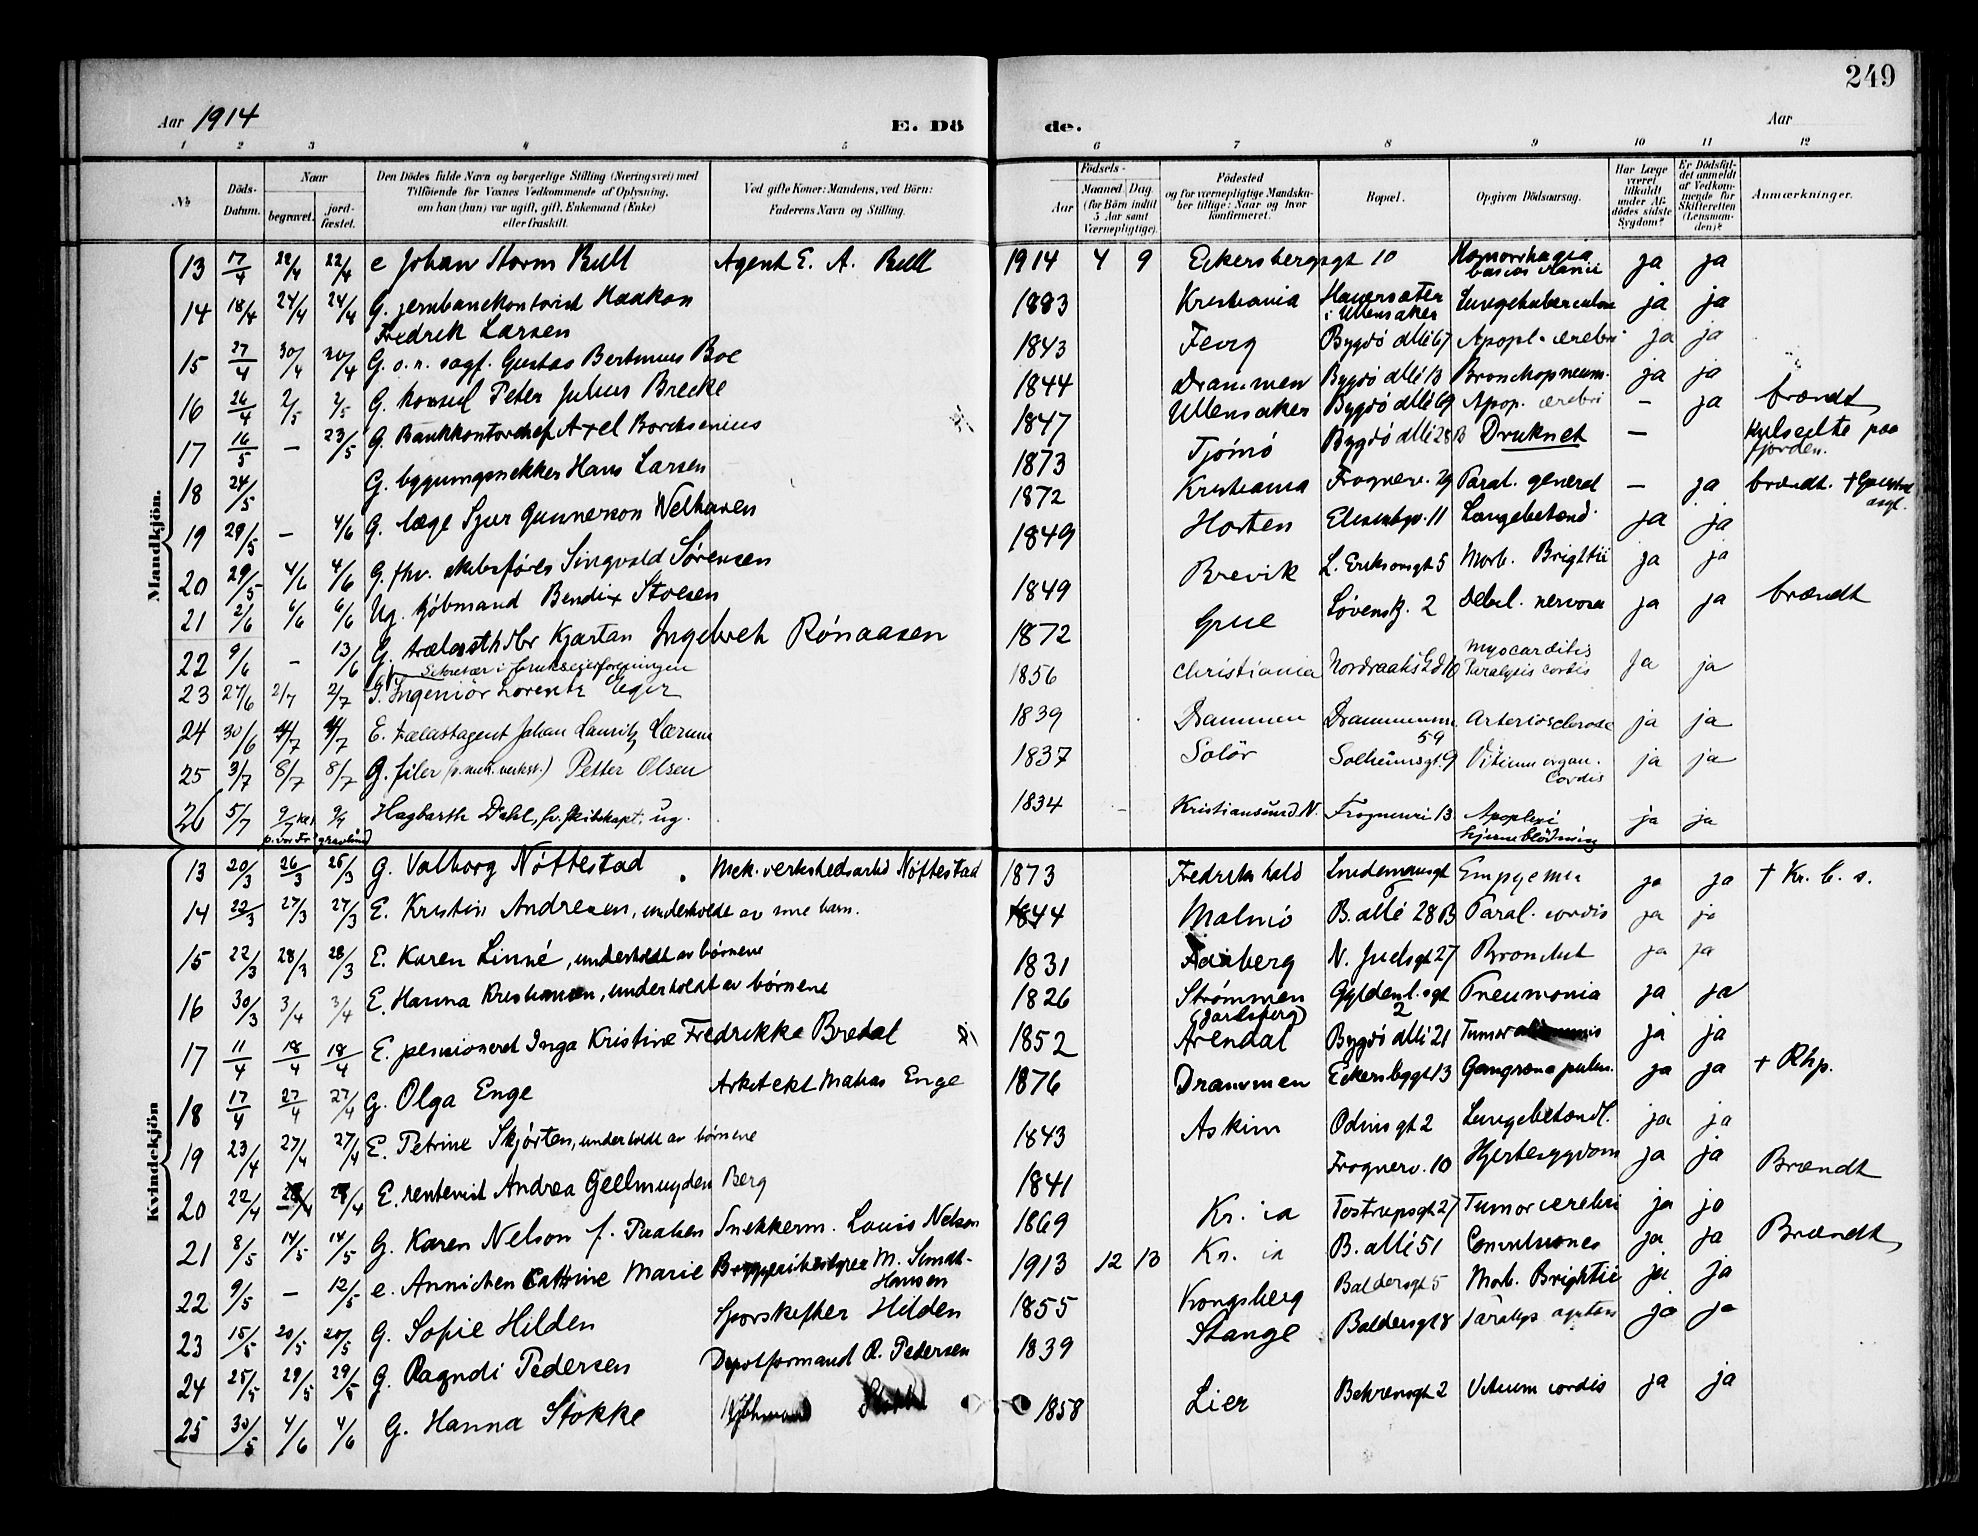 249
Aar 1914
E. Dö
de.
Aar
1 2 3 4 5 6 7 8 9 10 11 12
No.
Döds-Datum.
Naar
begravet.
jord-fæstet.
Den Dödes fulde Navn og borgerlige Stilling (Næringsvei) med
Tilföiende for Voxnes Vedkommende af Oplysning,
om han (hun) var ugift, gift, Enkemand (Enke)
eller fraskilt.
Ved gifte Koner: Mandens, ved Börn:
Faderens Navn og Stilling.
Födsels-
Aar
Maaned Dag
(for Börn indtil
5 Aar samt
Værnepligtige).
Födested
og for værnepligtige Mandska-
ber tillige: Naar og hvor
konfirmeret.
Bopæl.
Opgiven Dödsaarsag.
Har Læge
været
tilkaldt
under Af-
dödes sidste
Sygdom?
Er Dödsfal-
det anmeldt
af Vedkom-
mende for
Skifteretten
(Lensman-
den)?
Anmærkninger.
Mandkjön.
13 17/4 22/4 22/4 e Johan Storm Bull Agent E. A. Bull 1914 4 9 Eckersbergsgt 10 ja ja
14 18/4 24/4 24/4 G. jernbanekontorist Haakon Fredrik Larsen 1883 Kristiania Hauersæter i Ullensaker Lungetuberculose ja ja
15 27/4 30/4 30/4 G. o.r. sagf. Gustav Bertinius Boe 1843 Bygdö allé 67 Apopl. cerebri ja ja
16 26/4 2/5 2/5 G. konsul Peter Julius Brecke 1844 Drammen Bygdö allé 13 Bronchopneum. ja ja
17 16/5 — 23/5 G. Bankkontorchef Axel Borchsenius 1847 Ullensaker Bygdö allé 69 Apop. cerebri — ja brændt
18 24/5 G. bygningssnekker Hans Larsen 1873 Tjömö Bygdö allé 28 B Druknet — Kulseilte paa fjorden.
19 29/5 — 4/6 G. læge Sjur Gunnerson Welhaven 1872 Kristiania Frognerv. 29 Paral. general — ja brændt. † Gaustad asyl.
20 29/5 4/6 4/6 G. fhv. skibsförer Singvald Sørensen 1849 Horten Elisenbgv. 11 Lungebetænd. ja ja
21 2/6 6/6 6/6 Ug. kjöbmand Bendix Stoesen 1849 Brevik L. Eriksonsgt 5 Morb. Brightii ja ja
22 9/6 — 13/6 G. trælasthdlr Kjartan Ingebret Rönaasen 1872 Grue Lövensk. 2 Debil. nervosa ja ja brændt
Sekretær i brukseierforeningen
23 27/6 2/7 2/7 G. Ingeniör Lorentz Eger 1856 Christiania Nordraaks Gd 10 Myocarditis Paralysis cordis ja ja
24 30/6 4/7 4/7 E. trælastagent Johan Lauritz Lærum 1839 Drammen 59 Arteriosclerose ja ja
25 3/7 8/7 8/7 G. filer (v. mek. verkst.) Petter Olsen 1837 Solör Solheimsgt. 9 Vitium organ. Cordis ja ja
26 5/7 9/7 9/7 Hagbarth Dahl, fv. skibskapt. ug. 1834 Kristiansund N. Frognervei 13 Apoplexi Hjerneblödning ja ja
p. Vor Fr. gravlund
Kvindekjön
13 20/3 26/3 26/3 G. Valborg Nöttestad Mek. verkstedsarbd Nöttestad 1873 Fredrikshald Lindemansgt Empyema ja ja † Kr. b. s.
14 22/3 27/3 27/3 E. Kristin Andresen, underholdt av sine barn. 1844 Malmö B. allé 28 B Paral. cordis ja ja
15 22/3 28/3 28/3 E. Karen Linné, underholdt av börnene 1831 Faaberg N. Juelsgt 27 Bronchit ja ja
16 30/3 3/4 3/4 E. Hanna Kristiansen, underholdt av börnene 1826 Strømmen (Jarlsberg) Gyldenl.sgt 2 Pneumonia ja ja
17 11/4 18/4 18/4 E. pensioneret Inga Kristine Fredrikke Bredal 1852 Arendal Bygdö allé 21 Tumor ja ja
18 17/4 27/4 27/4 G. Olga Enge Arkitekt Mathias Enge 1876 Drammen Eckersbggt 13 Gangræna pulm. ja ja + Rhp.
19 23/4 27/4 27/4 E. Petrine Skjörten, underholdt av börnene 1843 Askim Odinsgt 2 Lungebetændl. ja ja
20 22/4 28/4 28/4 E. rentenist Andrea Geelmuyden Berg 1841 Frognerv. 10 Hjertesygdom ja ja Brændt
21 8/5 14/5 14/5 G. Karen Nelson f. Paulsen Snekkerm. Louis Nelson 1869 Kr. ia Tostrupsgt 27 Tumor cerebri ja ja
22 9/5 — 12/5 e. Annichen Cathrine Marie Bryggeribestyrer M. Smidt-Hansen 1913 12 13 Kr. ia B. allé 51 Convulsiones ja ja Brændt
23 15/5 20/5 20/5 G. Sofie Hilden Sporskifter Hilden 1855 Kongsberg Baldersgt 5 Morb. Brightii ja ja
24 25/5 29/5 29/5 G. Ragndi Pedersen Depotformand R. Pedersen 1839 Stange Baldersgt 8 Paralys agitans ja ja
25 30/5 4/6 4/6 G. Hanna Stokke 1858 Lier Behrensgt 2 Vitium cordis ja ja